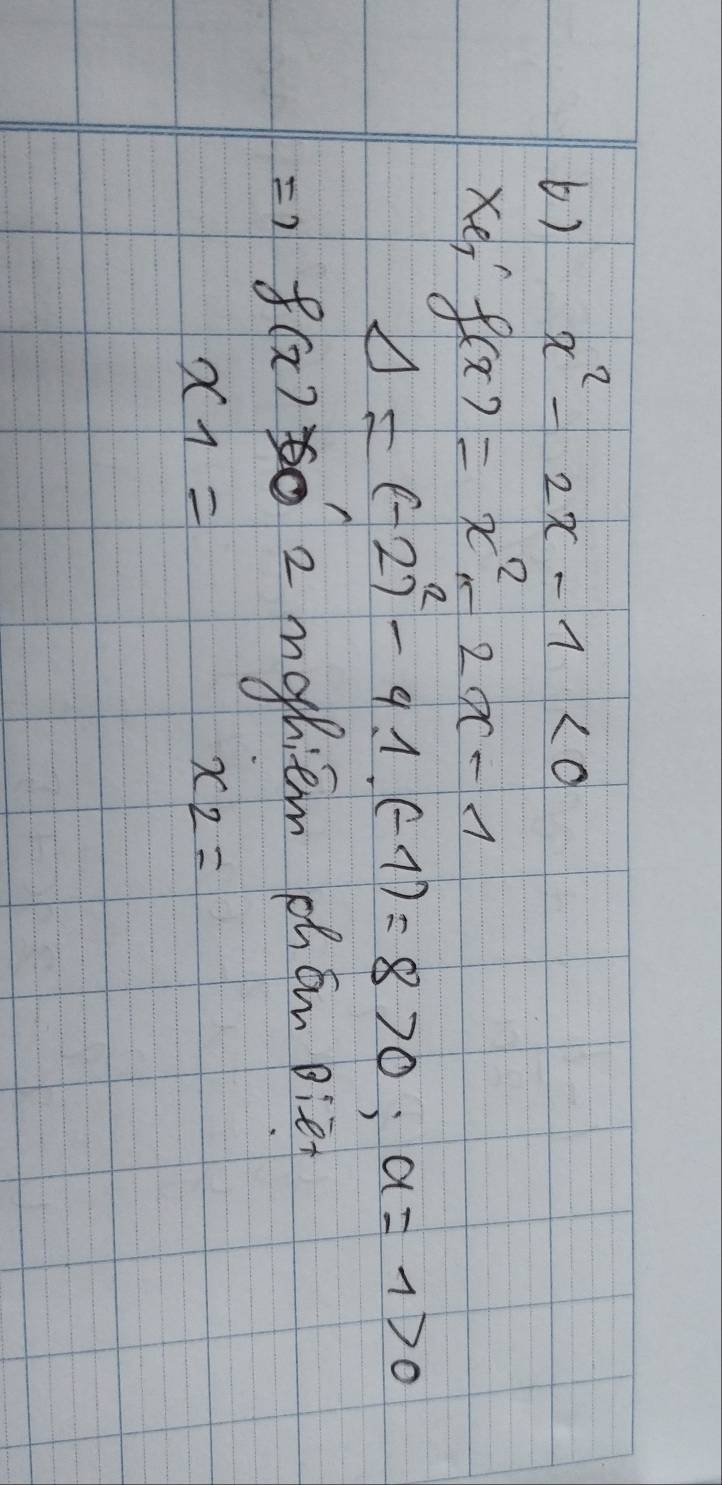 b) x² - 2x - 1 < 0
Xét f(x) = x² - 2x - 1
Δ = (-2)² - 4.1.(-1) = 8 > 0 ; a = 1 > 0
=> f(x) có 2 nghiệm phân biệt
x1 = x2 =